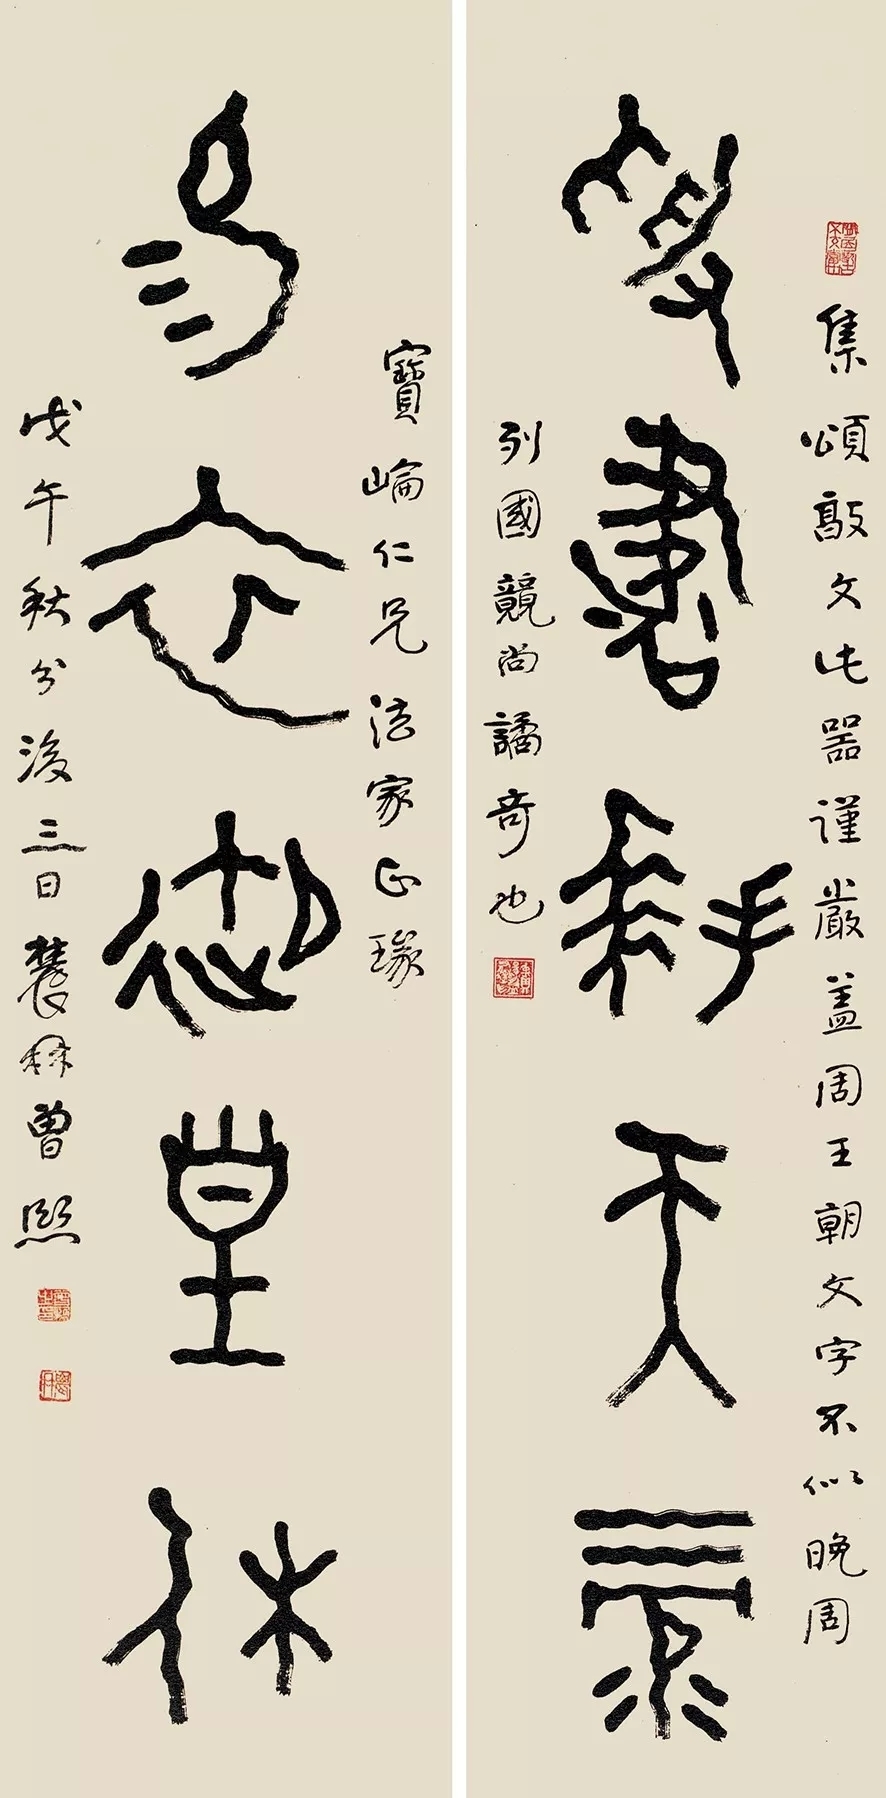 集頌敦文此器謹嚴蓋周王朝文字不似晚周
書拜天霝
列國競尚譎奇也
寶崘仁兄法家正瑑
易御皇休
戊午秋分後三日農髯曾熙